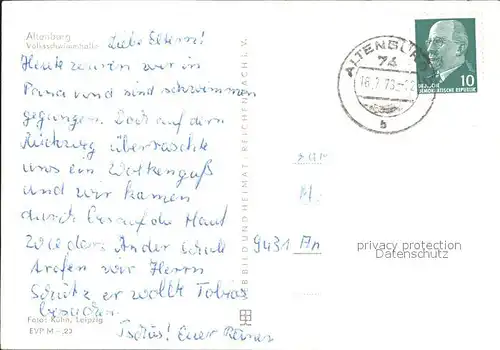 Altenburg
Volksschwimmhalle
Liebe Eltern!
Heute waren wir in
Pana und sind schwimmen
gegangen. Doch auf dem
Rückweg überraschte
uns ein Wolkenguß
und wir kamen
durch bis auf die Haut
wieder. An der Schule
trafen wir Herrn
Schütz er wollte Tobias
besuchen.
Tschüs! Euer Rainer
Foto: Kühn, Leipzig
EVP M -,20
BILD UND HEIMAT, REICHENBACH I. V.
ALTENBURG
74
16.7.73
b
10
DEUTSCHE
DEMOKRATISCHE REPUBLIK
M.
9431 An
privacy protection
Datenschutz